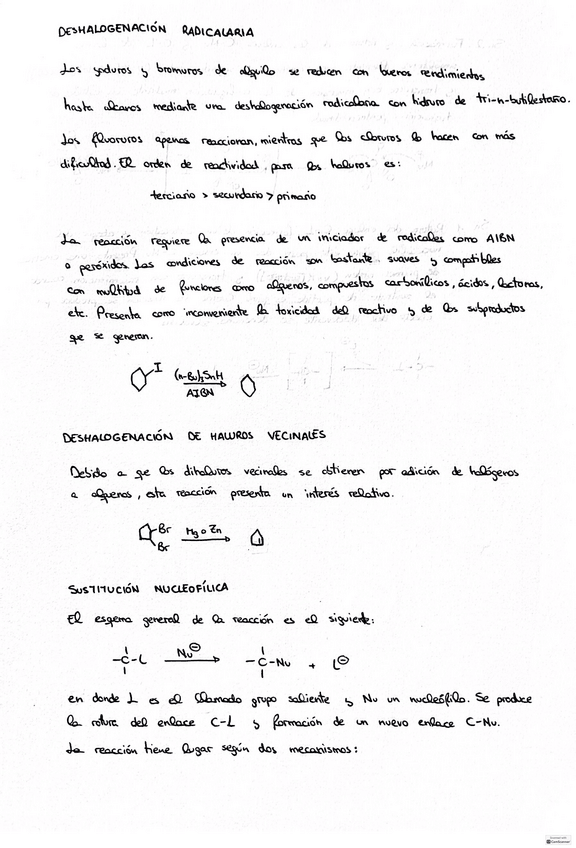 DESHALOGENACIÓN RADICALARIA
Los yoduros y bromuros de alquilo se reducen con buenos rendimientos
hasta alcanos mediante una deshalogenación radicalaria con hidruro de tri-n-butilestaño.
Los fluoruros apenas reaccionan, mientras que los cloruros lo hacen con más
dificultad. El orden de reactividad para los haluros es:
terciario > secundario > primario
La reacción requiere la presencia de un iniciador de radicales como AIBN
o peróxidos. Las condiciones de reacción son bastante suaves y compatibles
con multitud de funciones como alquenos, compuestos carbonílicos, ácidos, lactonas,
etc. Presenta como inconveniente la toxicidad del reactivo y de los subproductos
que se generan.
I
(n-Bu)3SnH
AIBN
DESHALOGENACIÓN DE HALUROS VECINALES
Debido a que los dihaluros vecinales se obtienen por adición de halógenos
a alquenos, esta reacción presenta un interés relativo.
Br
Br
Mg o Zn
SUSTITUCIÓN NUCLEOFÍLICA
El esquema general de la reacción es el siguiente:
-C-L Nu⊖ -C-Nu + L⊖
en donde L es el llamado grupo saliente y Nu un nucleófilo. Se produce
la rotura del enlace C-L y formación de un nuevo enlace C-Nu.
La reacción tiene lugar según dos mecanismos:
CamScanner